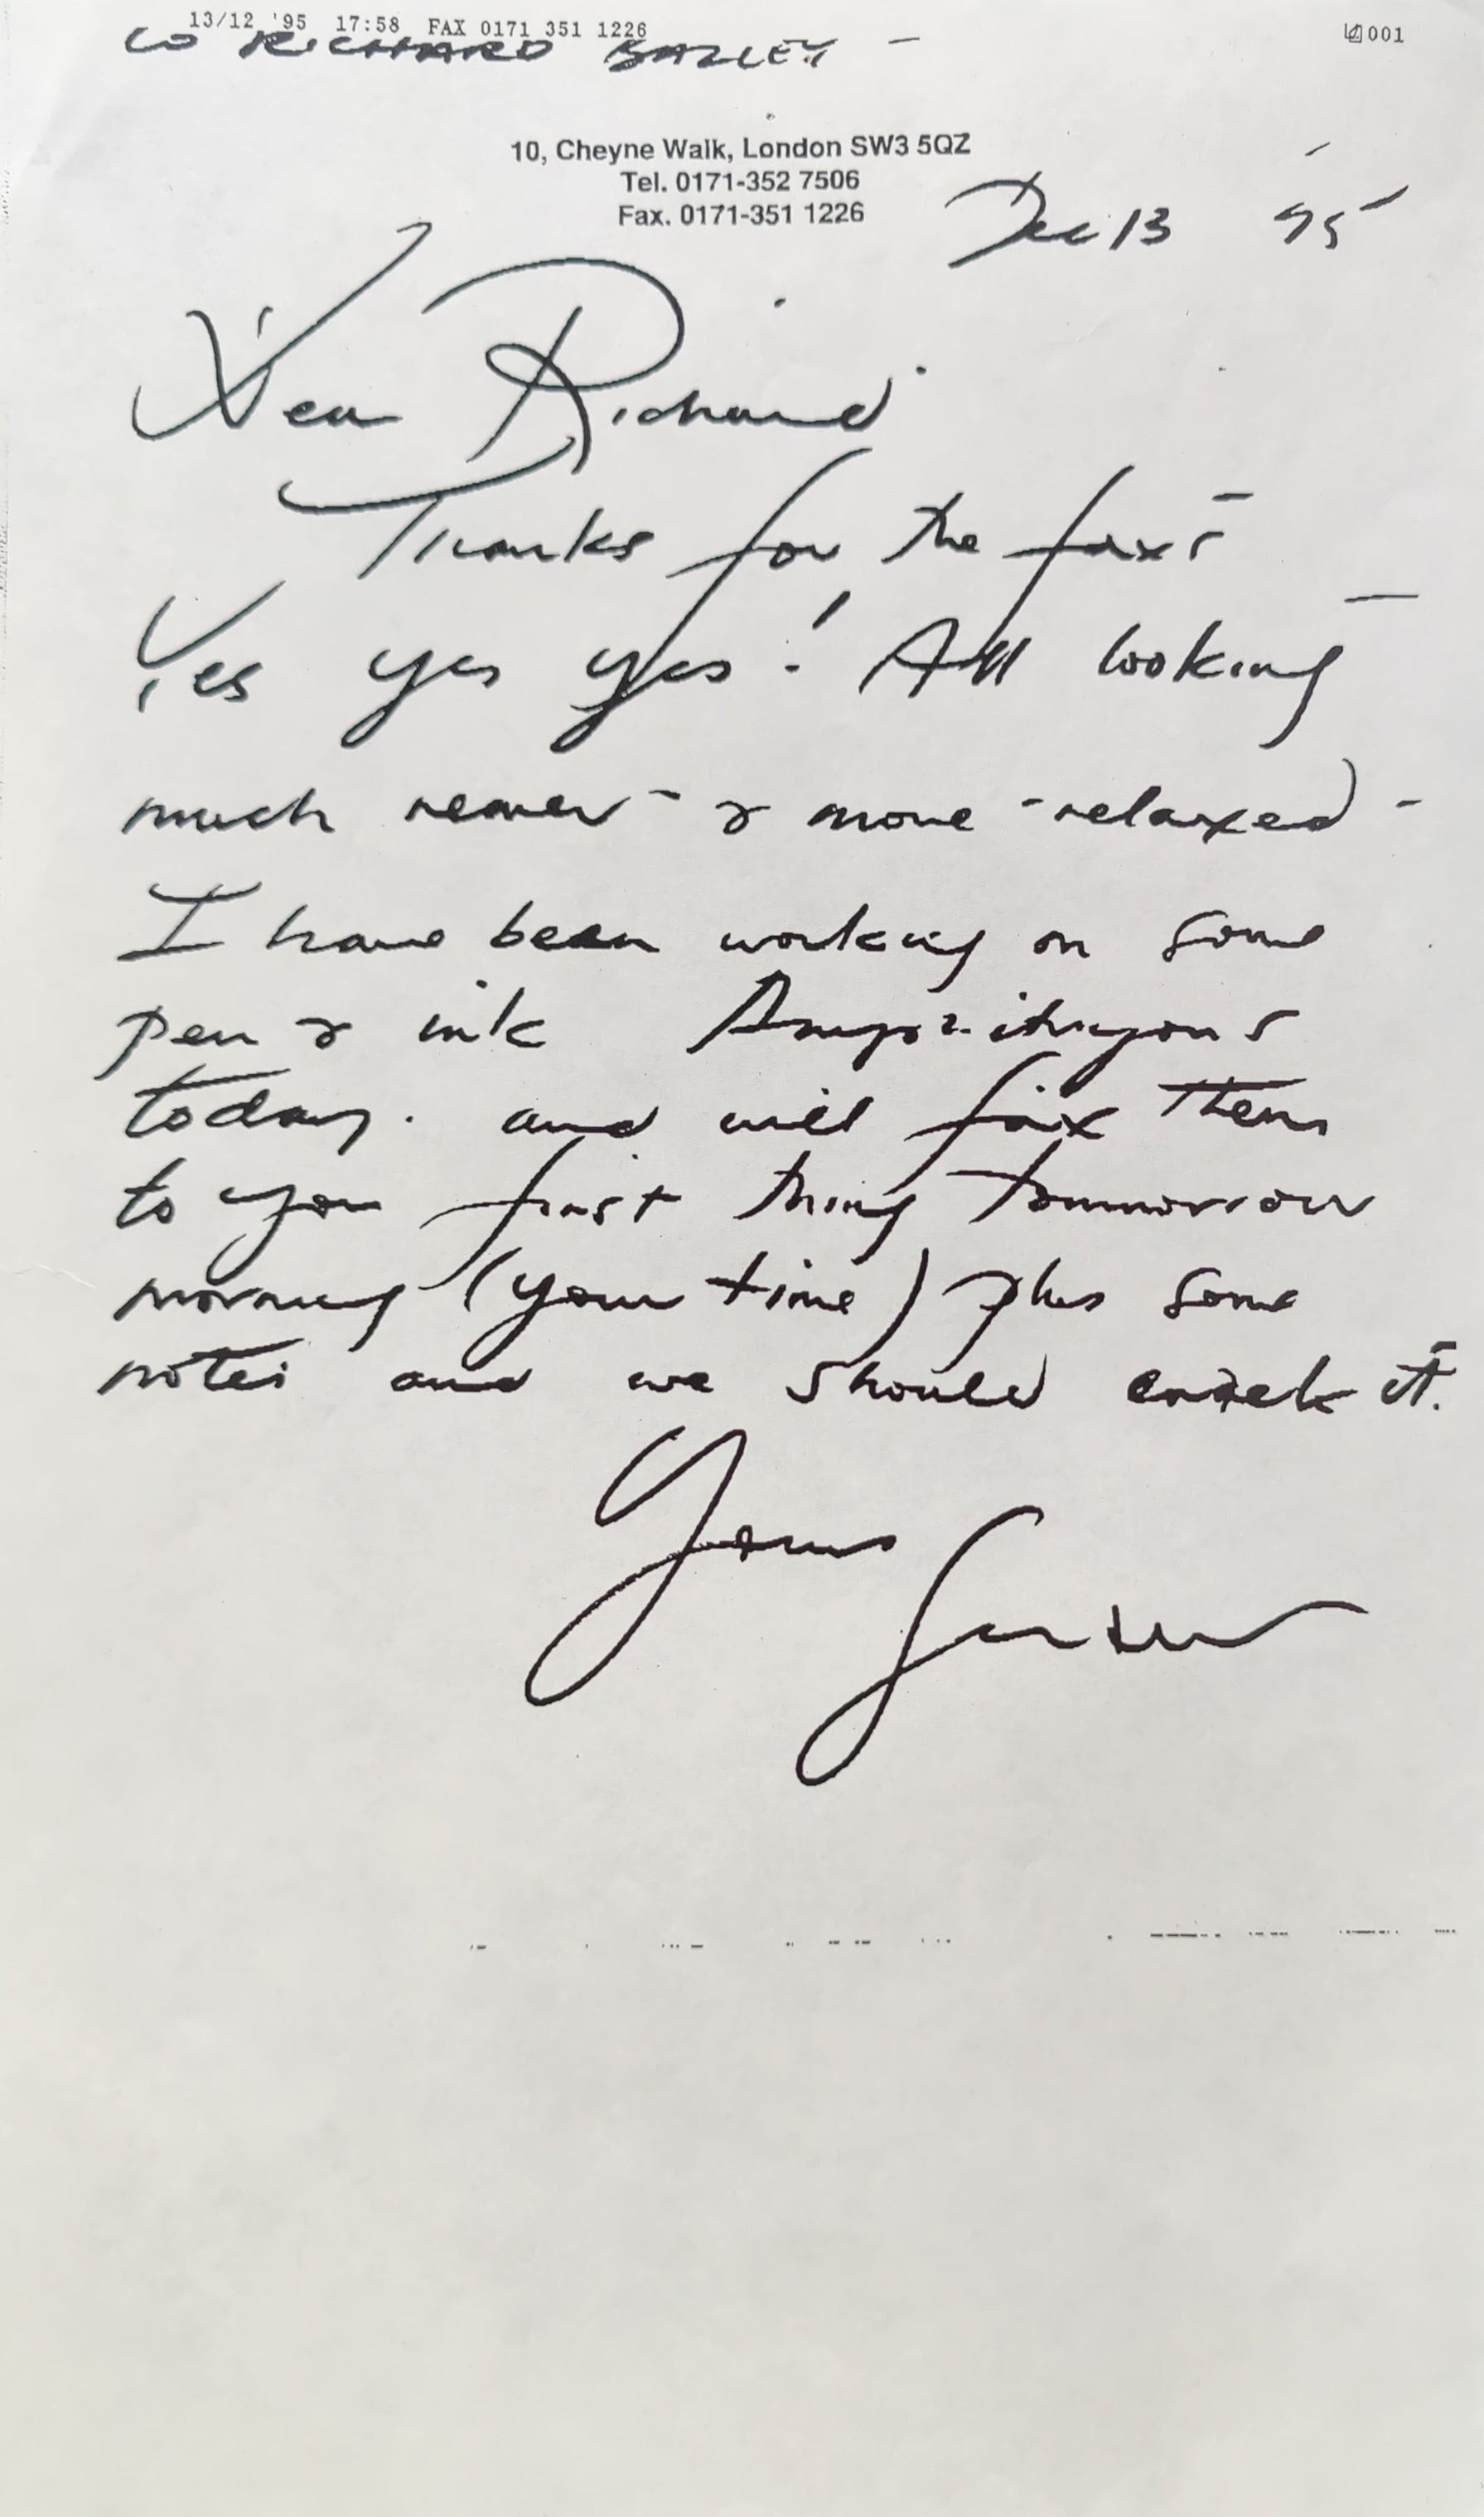 13/12 '95 17:58 FAX 0171 351 1226 001
to RICHARD BAZLEY -
10, Cheyne Walk, London SW3 5QZ
Tel. 0171-352 7506
Fax. 0171-351 1226
Dec 13 95
Dear Richard
Thanks for the faxs
Yes yes yes! All looking
much & more relaxed -
I have been working on some
pen & ink Amphitryons
today. and will fax them
to you first thing tommorrow
morning (your time) plus some
notes and we should crack it.
Yours